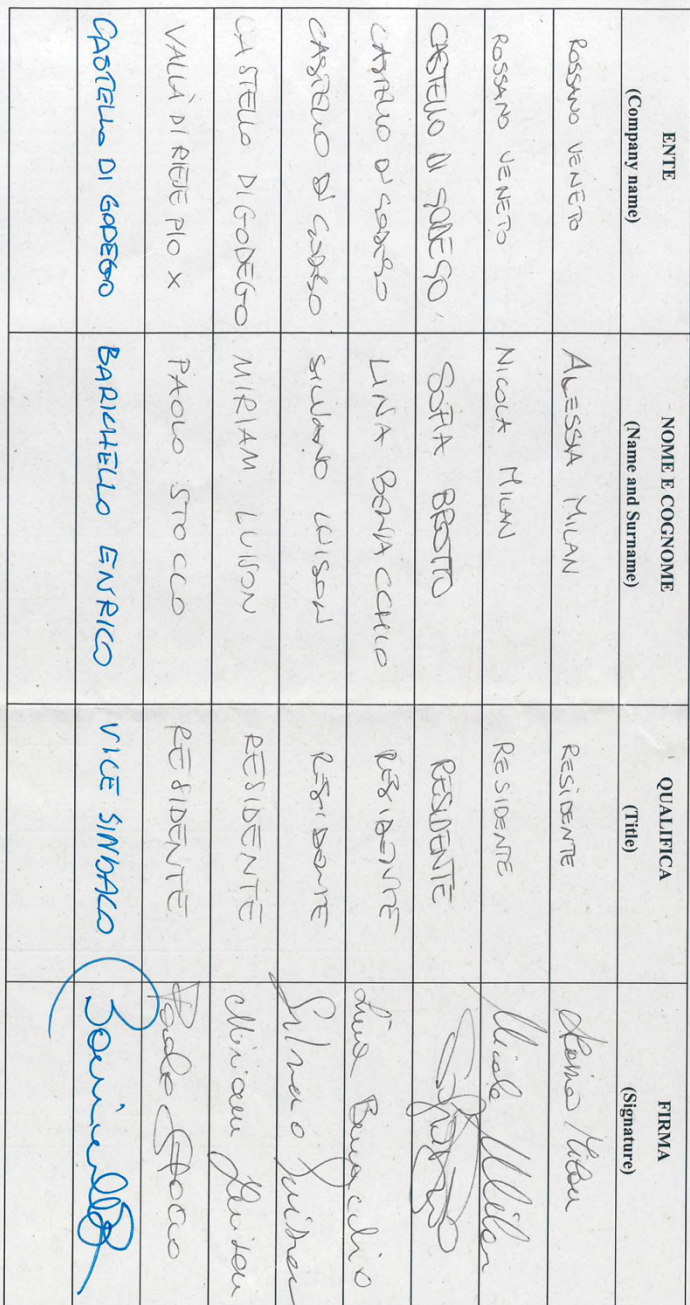 ENTE NOME E COGNOME QUALIFICA FIRMA
(Company name) (Name and Surname) (Title) (Signature)
ROSSANO VENETO ALESSIA MILAN RESIDENTE Alessia Milan
ROSSANO VENETO NICOLA MILAN RESIDENTE Nicola Milan
CASTELLO DI GODEGO SOFIA BROTTO RESIDENTE
CASTELLO DI GODEGO LINA BONACCHIO RESIDENTE Lina Bonacchio
CASTELLO DI GODEGO SILVANO LUISON RESIDENTE Silvano Luison
CASTELLO DI GODEGO MIRIAM LUISON RESIDENTE Miriam Luison
VALLÀ DI RIESE PIO X PAOLO STOCCO RESIDENTE Paolo Stocco
CASTELLO DI GODEGO BARICHELLO ENRICO VICE SINDACO